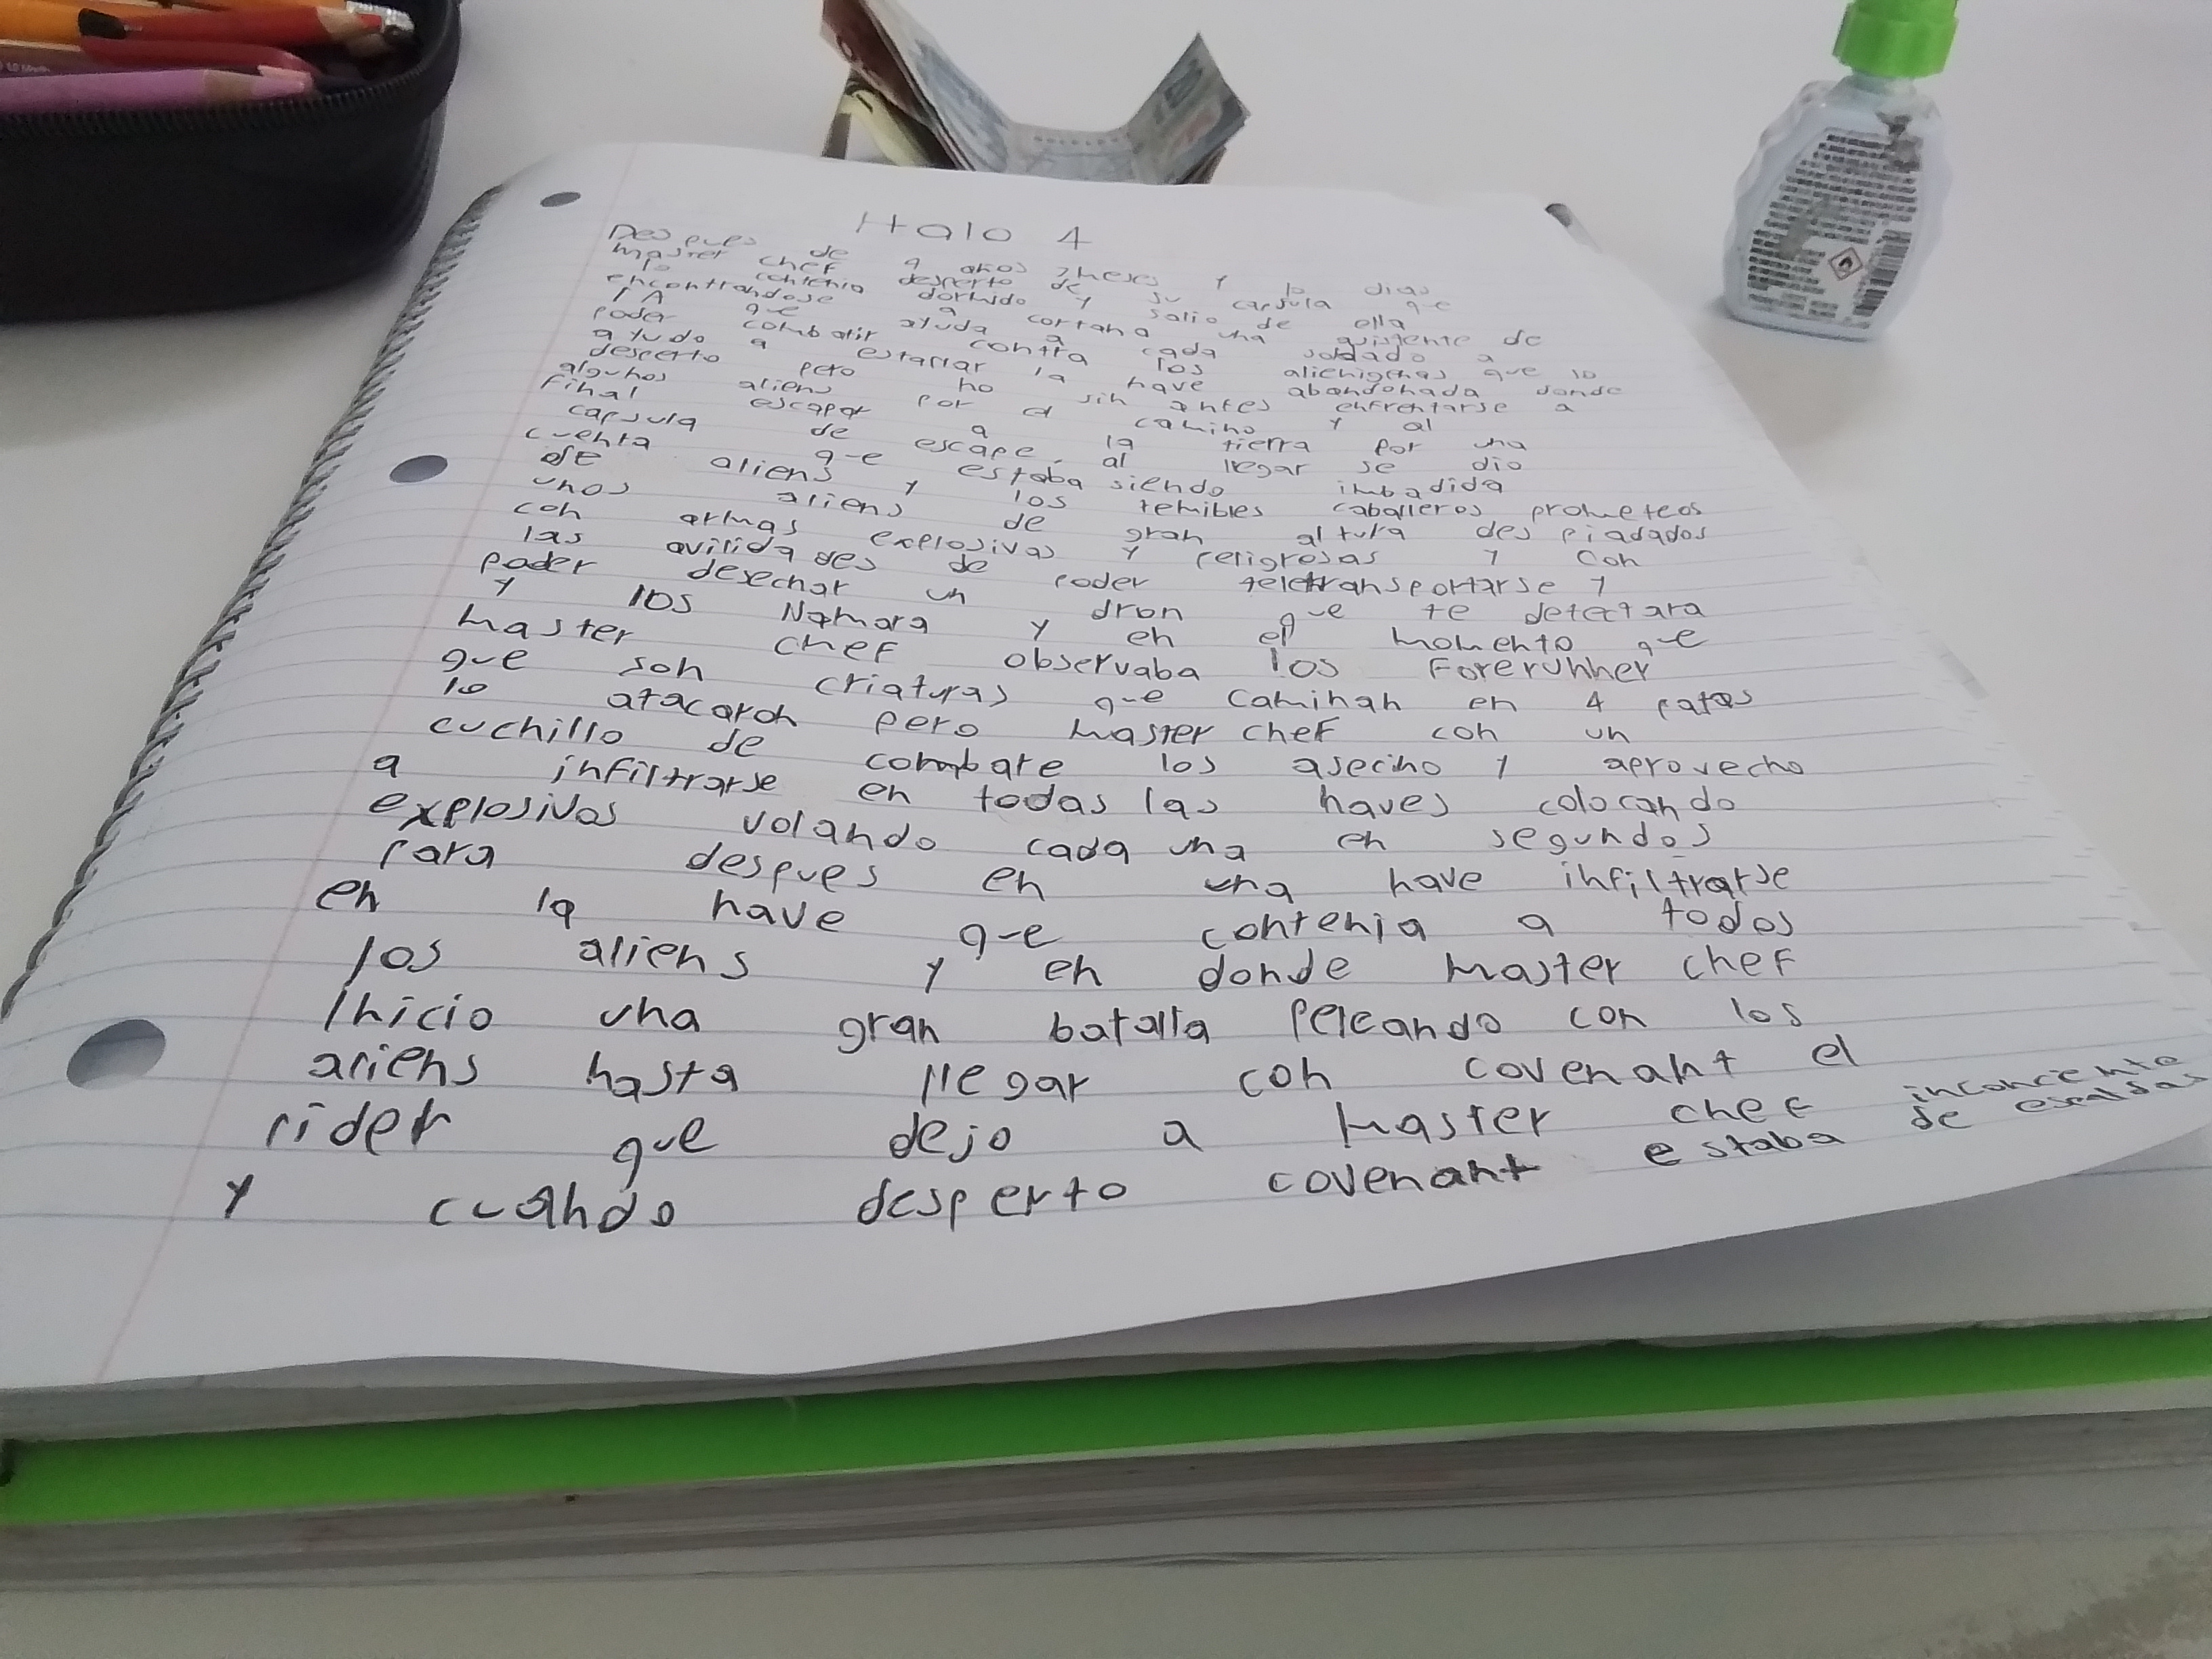 Halo 4
Despues de 4 años 7 meses y 10 dias
master chef desperto de su capsula que
lo contenia dormido y salio de ella
encontrandose a cortana una asistente de
IA que ayuda a cada soldado a
poder combatir contra los alienigenas que lo
ayudo a estallar la nave abandonada donde
desperto pero no sin antes enfrentarse a
algunos aliens por el camino y al
final escapar a la tierra por una
capsula de escape, al llegar se dio
cuenta que estaba siendo imbadida
de aliens y los temibles caballeros prometeos
unos aliens de gran altura despiadados
con armas explosivas y peligrosas y con
las avilidades de poder teletransportarse y
poder desechar un dron que te detectara
y los Namara y en el momento que
master chef observaba los Forerunner
que son criaturas que caminan en 4 patas
lo atacaron pero master chef con un
cuchillo de combate los asecino y aprovecho
a infiltrarse en todas las naves colocando
explosivos volando cada una en segundos
para despues en una nave infiltrarse
en la nave que contenia a todos
los aliens y en donde master chef
inicio una gran batalla peleando con los
aliens hasta llegar con covenant el
rider que dejo a master chef inconcente
y cuando desperto covenant estaba de espaldas